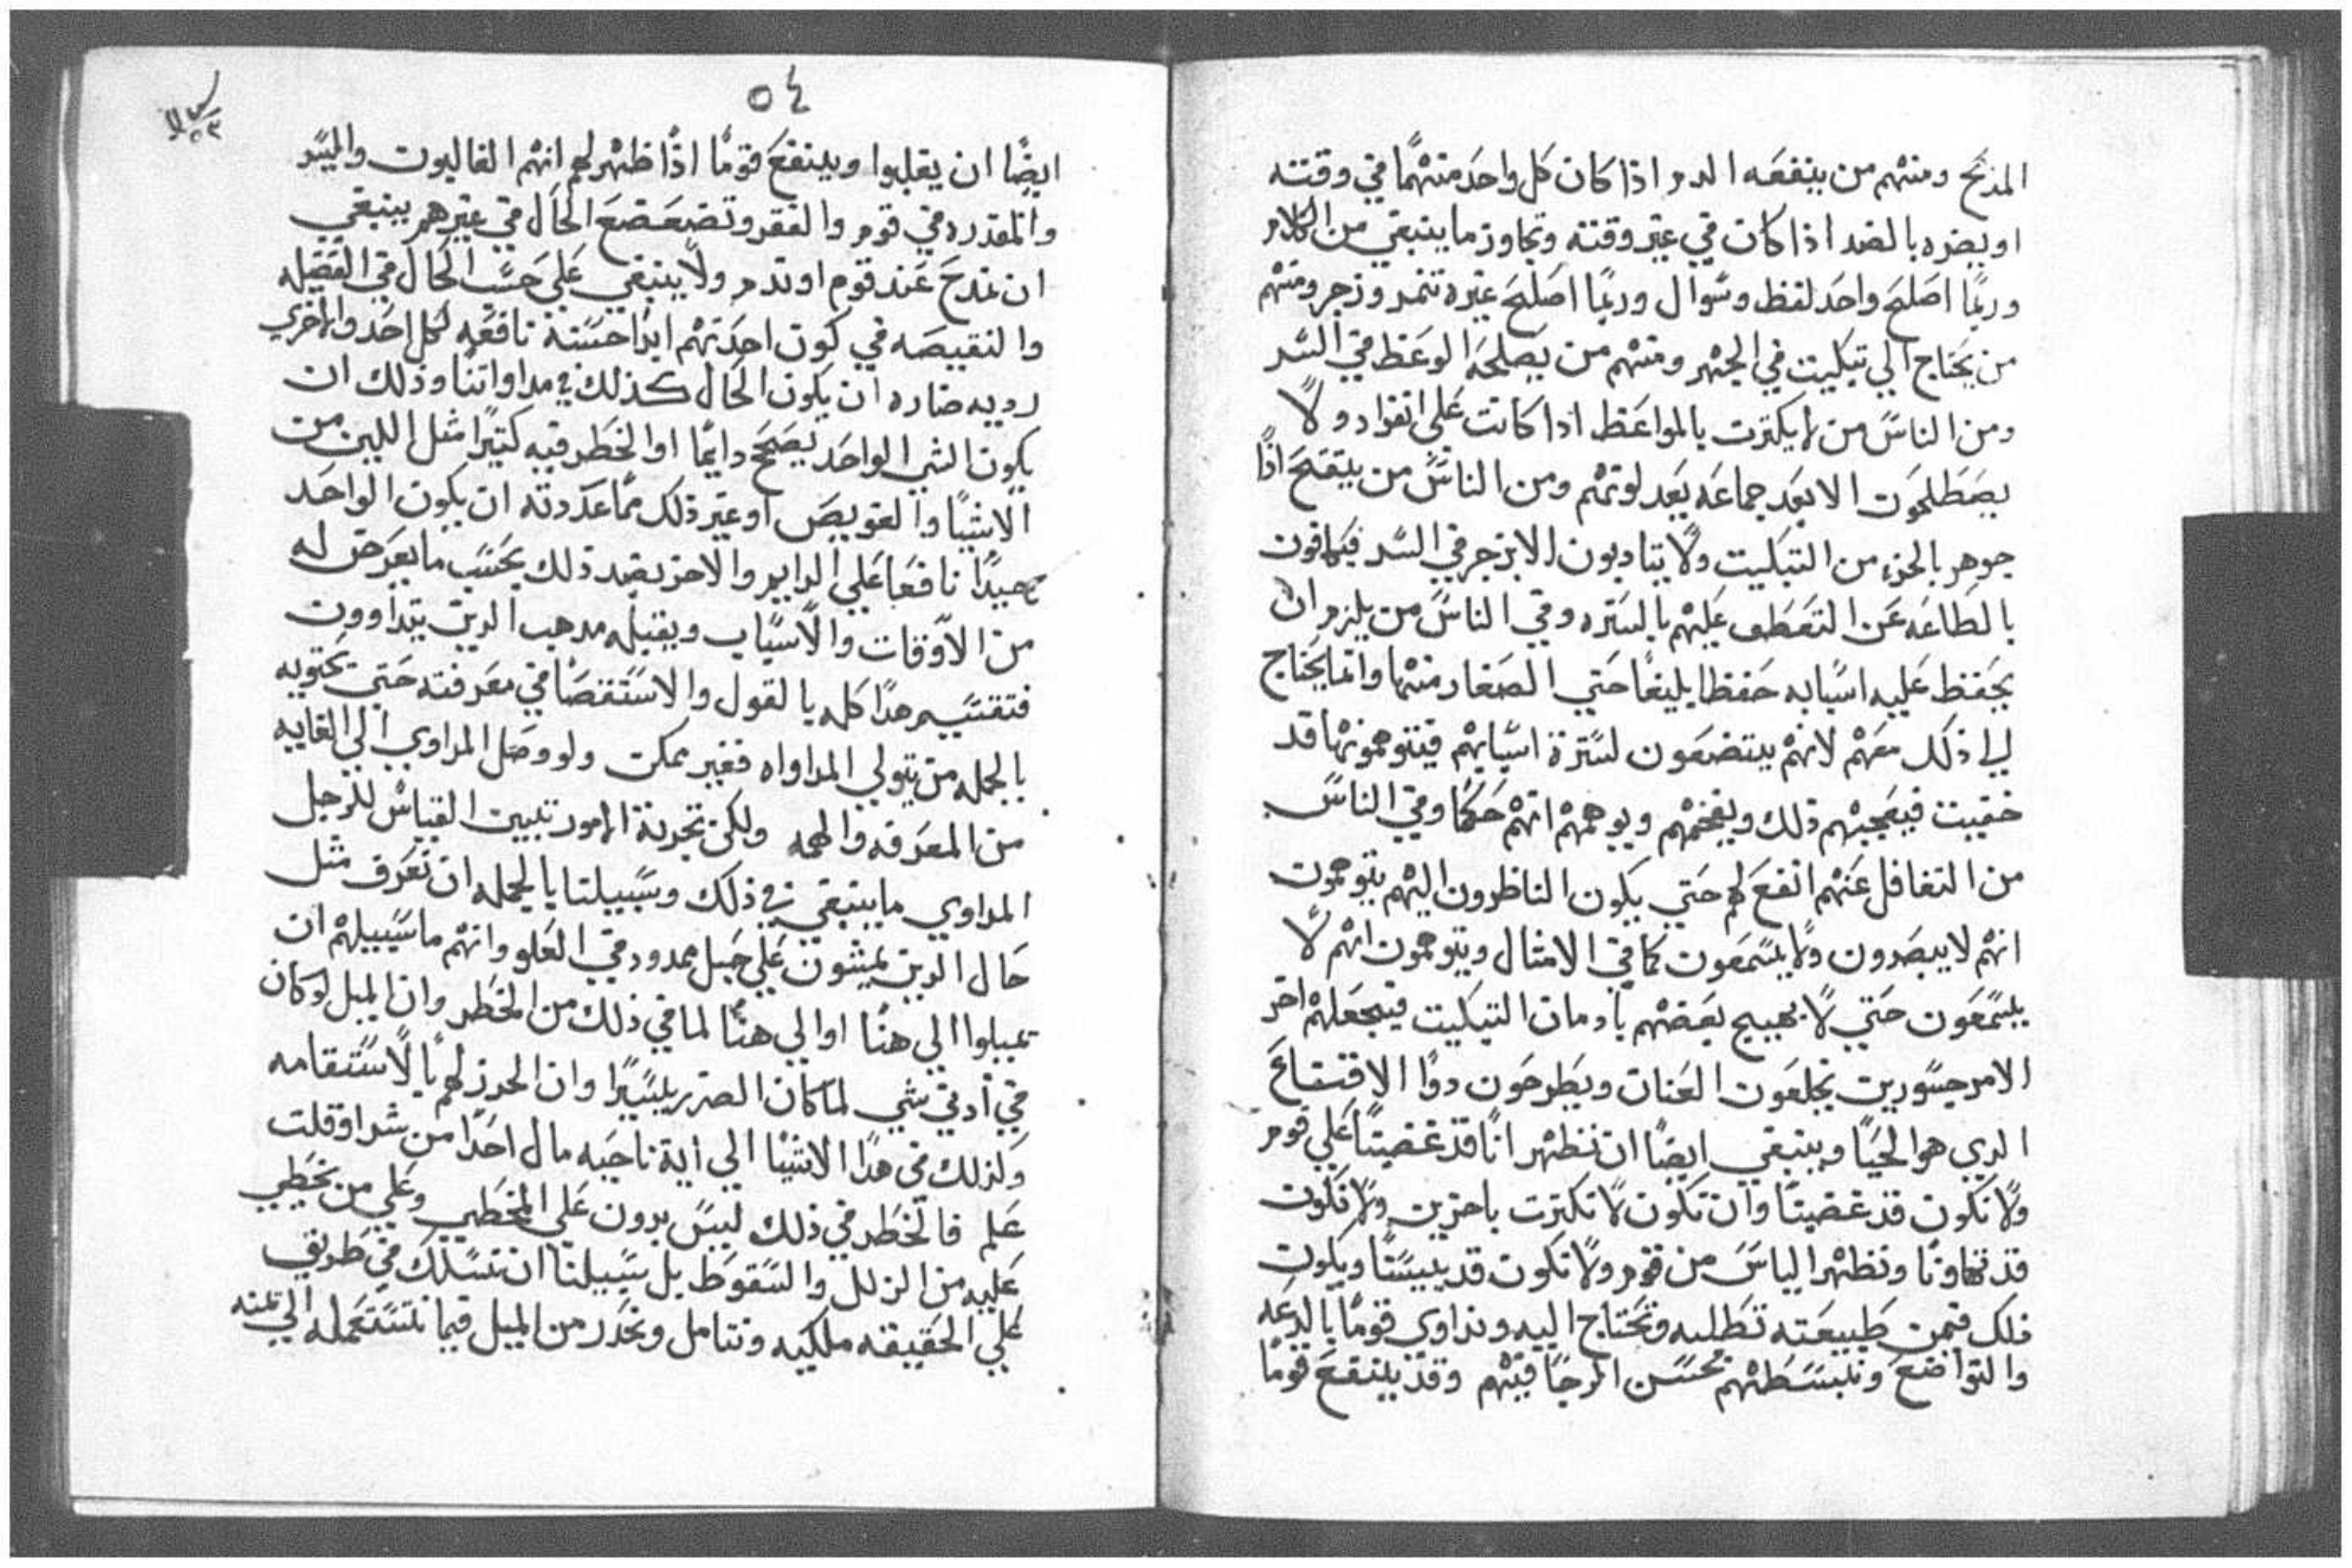 المدح ومنهم من ينفعه الدم اذا كان كل واحد منهما في وقته
او يضره بالضد اذا كان في غير وقته وتجاوز ما ينبغي من الكلام
وربما اصلح واحد لفظ وسوال وربما اصلح غيره تنمر وزجر ومنهم
من يحتاج الي تبكيت في الجهر ومنهم من يصلحه الوعظ في السر
ومن الناس من لا يكترت بالمواعظ اذا كانت علي انفراد ولا
يصطلحون الا بعد جماعه بعد لوتهم ومن الناس من يتقح اذا
جوهر بالحزء من التبكيت ولا يتادبون الا بزجر في السر فيكافون
بالطاعه عن التعطف عليهم بالستره وفي الناس من يلزم ان
يحفظ عليه اسبابه حفظا بليغا حتي الصغار منها وانما يحتاج
الي ذلك معهم لانهم يتضعون لسترة اسبابهم فيتوهمونها قد
خفيت فيعجبهم ذلك ويفخمهم ويوهمهم انهم حكما وفي الناس
من التغافل عنهم انفع لهم حتي يكون الناظرون اليهم يتوهمون
انهم لا يبصرون ولا يسمعون كما في الامثال ويتوهمون انهم لا
يسمعون حتي لا يهيج بعضهم بادمان التبكيت فيجعلهم اخر
الامر جسورين يخلعون العنان ويطرحون دوا الاقتناع
الدي هو الحيا وينبغي ايضا ان نظهر انا قد غضبنا علي قوم
ولا نكون قد غضبنا وان نكون لا نكترت باخرين ولا نكون
قد تهاونا ونظهر الياس من قوم ولا نكون قد ييسنا ويكون
ذلك فيمن طبيعته تطلبه وتحتاج اليه ونداوي قوما بالدعه
والتواضع ونبسطهم بحسن الرجا فيهم وقد ينتفع قوما
٥٤
ايضا ان يغلبوا وينتفع قوما اذا ظهر لهم انهم الغالبون والميسر
والمقدره في قوم والفقر وتضعضع الحال في غيرهم ينبغي
ان تمدح عند قوم او تدم ولا ينبغي علي حسب الحال في الفضيله
والنقيصه في كون احدتهم ابدا حسنة نافعه لكل احد والاخري
رديه ضاره ان يكون الحال كذلك في مداواتنا وذلك ان
يكون الشي الواحد يصحح دايما او الخطر فيه كتيرا مثل اللين من
الاشيا والعويص او غير ذلك مما عددته ان يكون الواحد
جيدا نافعا علي الدايم والاخر بضد ذلك بحسب ما يعرض له
من الاوقات والاسباب ويقبله مدهب الدين يتداوون
فتقسيم هدا كله بالقول والاستقصا في معرفته حتي يحتويه
بالجمله من يتولي المداواه فغير ممكن ولو وصل المداوي الي الغايه
من المعرفه والهمه ولكن تجربة الامور تبين القياس للرجل
المداوي ما ينبغي في ذلك وسبيلنا بالجمله ان نعرف مثل
حال الدين يمشون علي حبل ممدود في العلو وانهم ما سبيلهم ان
يميلوا الي هنا او الي هنا لما في ذلك من الخطر وان الميل لو كان
في ادني شي لما كان الضرر يسيرا وان الحرز لهم بالاستقامه
وكذلك في هدا الاشيا الي اية ناحيه مال احدا من شر او قلت
علم فالخطر في ذلك ليس بدون علي المخطي وعلي من يخطي
عليه من الزلل والسقوط بل سبيلنا ان نسلك في طريق
علي الحقيقه ملكيه ونتامل ونحدر من الميل فيما نستعمله الي يمنه